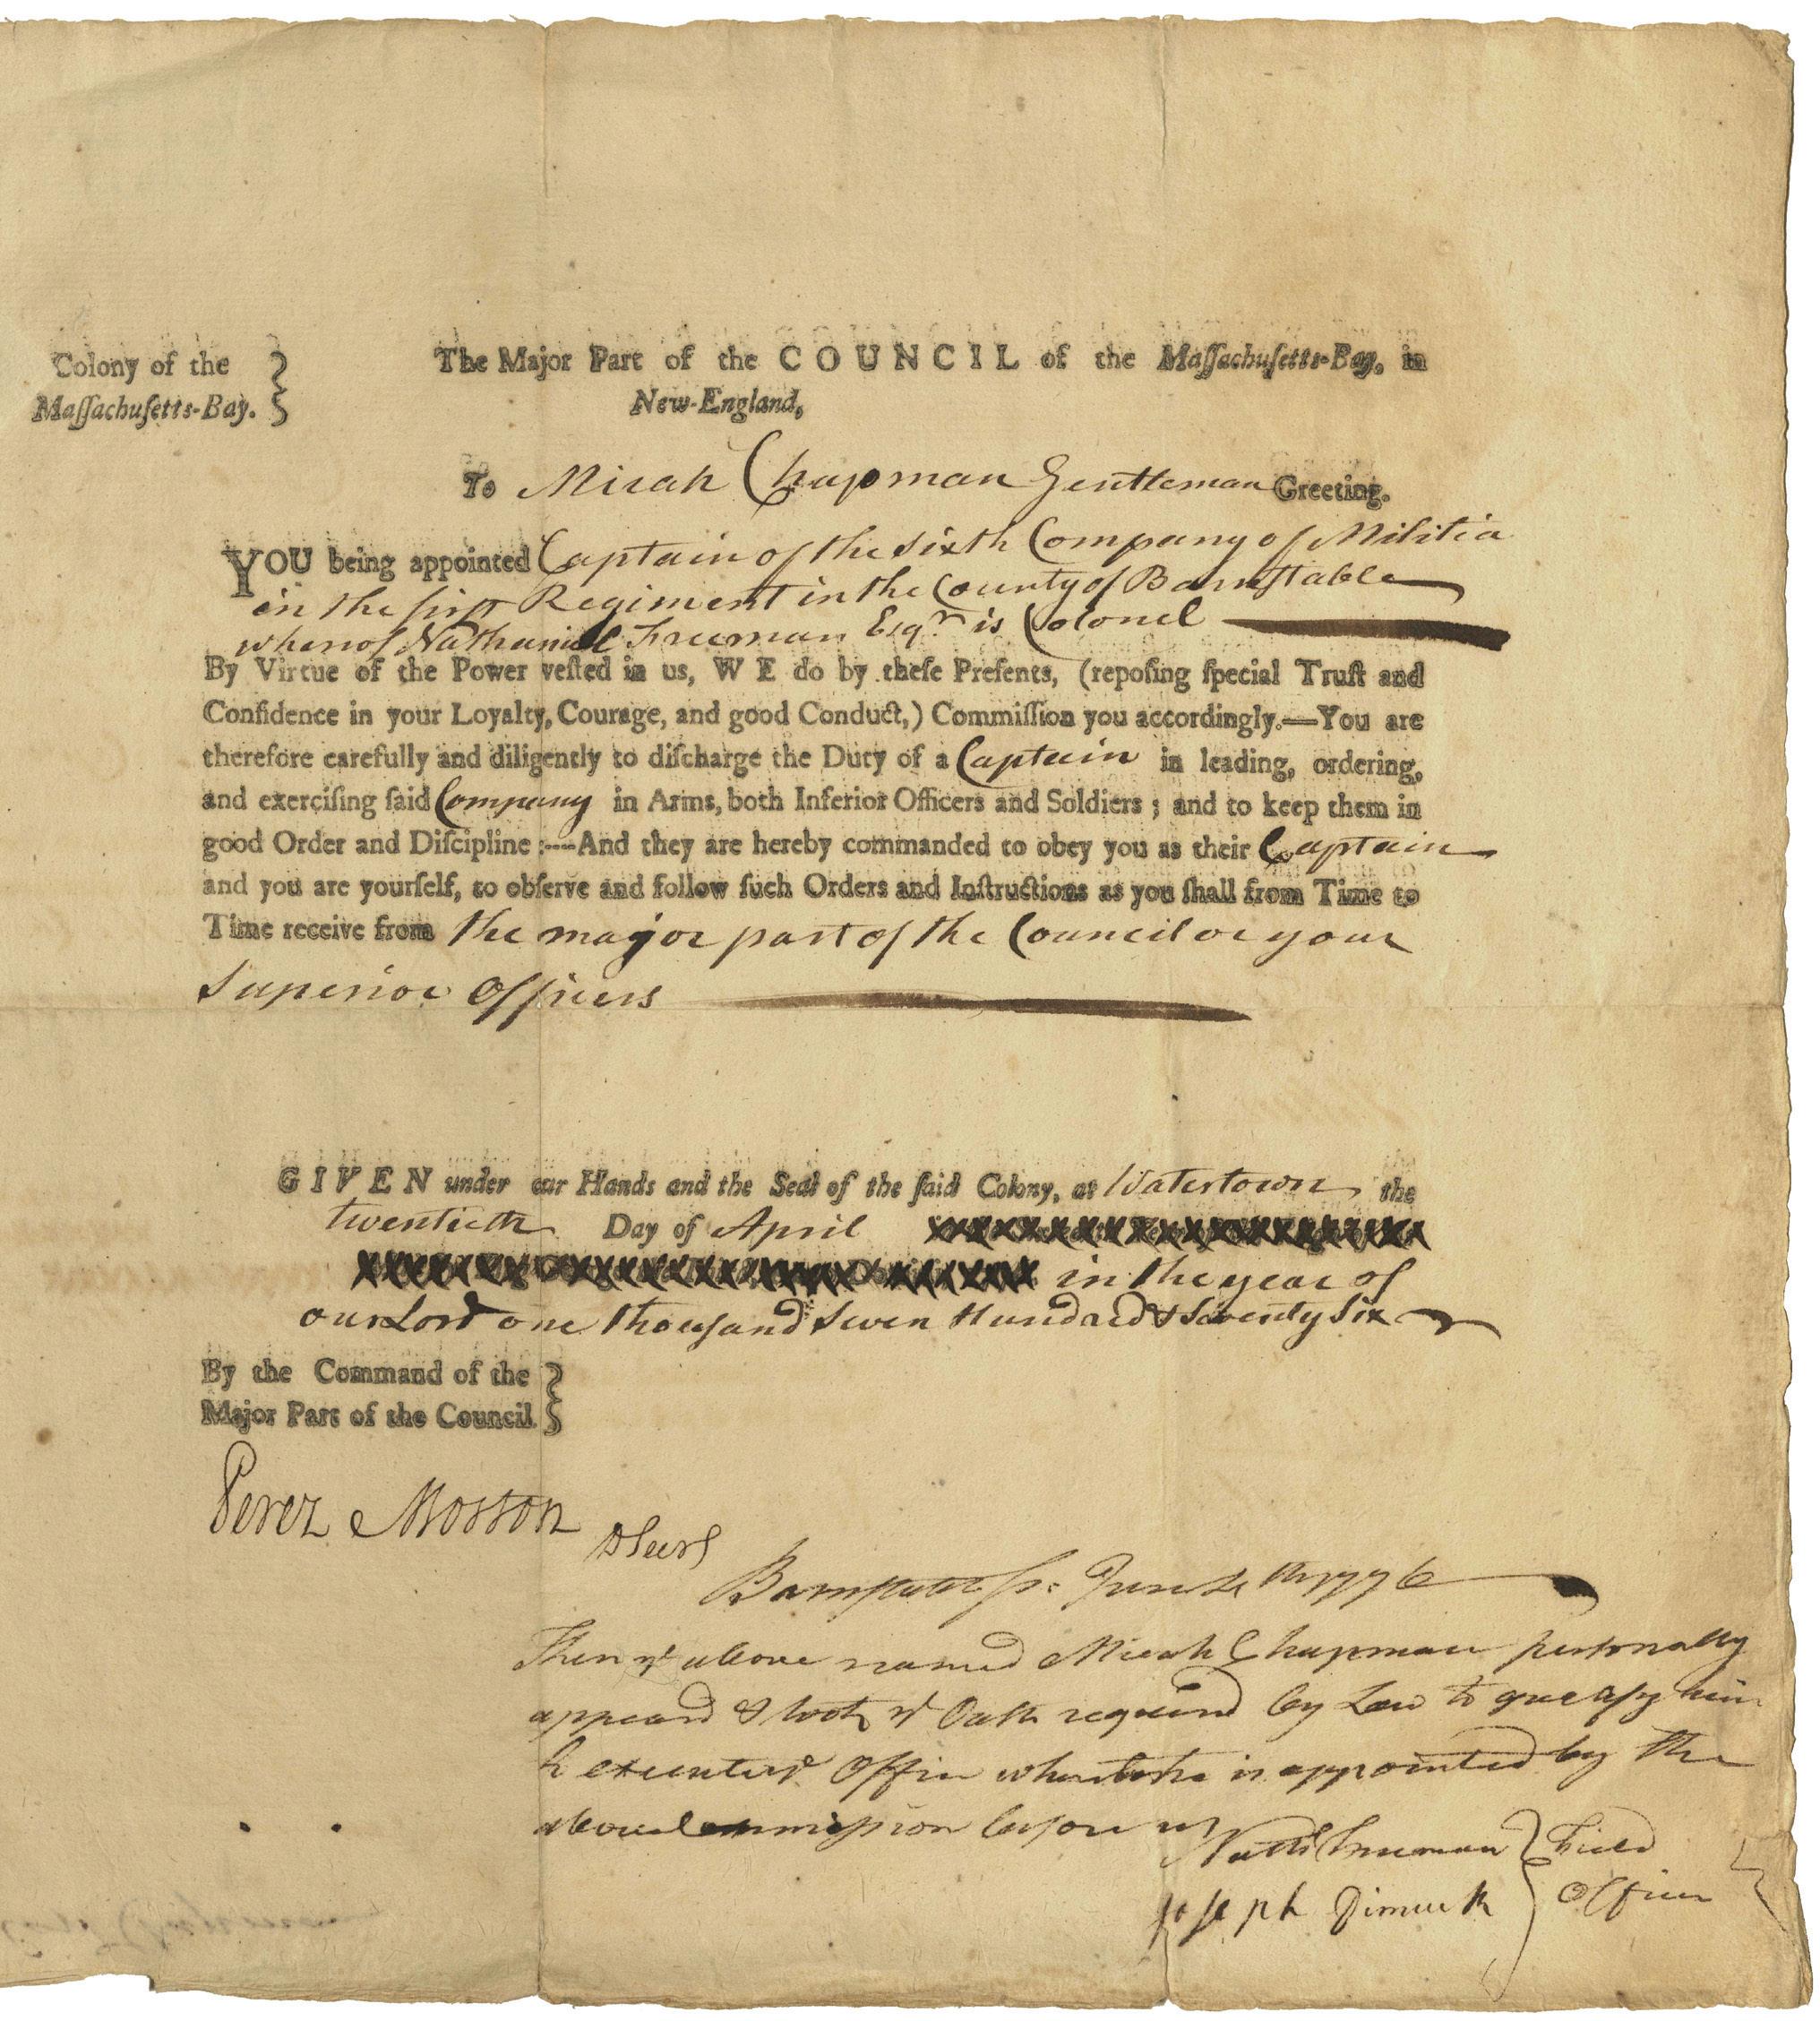 Colony of the
Maſſachuſetts-Bay.
The Major Part of the COUNCIL of the Maſſachuſetts-Bay, in
New-England,
To Micah Chapman Gentleman Greeting.
YOU being appointed Captain of the sixth Company of Militia
in the first Regiment in the County of Barnstable
whereof Nathaniel Freeman Esqr. is Colonel
By Virtue of the Power veſted in us, WE do by theſe Preſents, (repoſing ſpecial Truſt and
Confidence in your Loyalty, Courage, and good Conduct,) Commiſſion you accordingly.—You are
therefore carefully and diligently to diſcharge the Duty of a Captain in leading, ordering,
and exerciſing ſaid Company in Arms, both Inferior Officers and Soldiers; and to keep them in
good Order and Diſcipline :----And they are hereby commanded to obey you as their Captain
and you are yourſelf, to obſerve and follow ſuch Orders and Inſtructions as you ſhall from Time to
Time receive from the major part of the Council or your
Superior Officers
GIVEN under our Hands and the Seal of the ſaid Colony, at Watertown the
twentieth Day of April
in the year of
our Lord one thousand Seven Hundred & Seventy Six
By the Command of the
Major Part of the Council.
Perez Morton
D Secry
June 1776
Then ye above named Micah Chapman personally
appeard & took ye Oath required by Law to him
to execute ye Office whereto he is appointed by the
above Commission before us
Nathl Freeman Field
Joseph Dimuck Officers